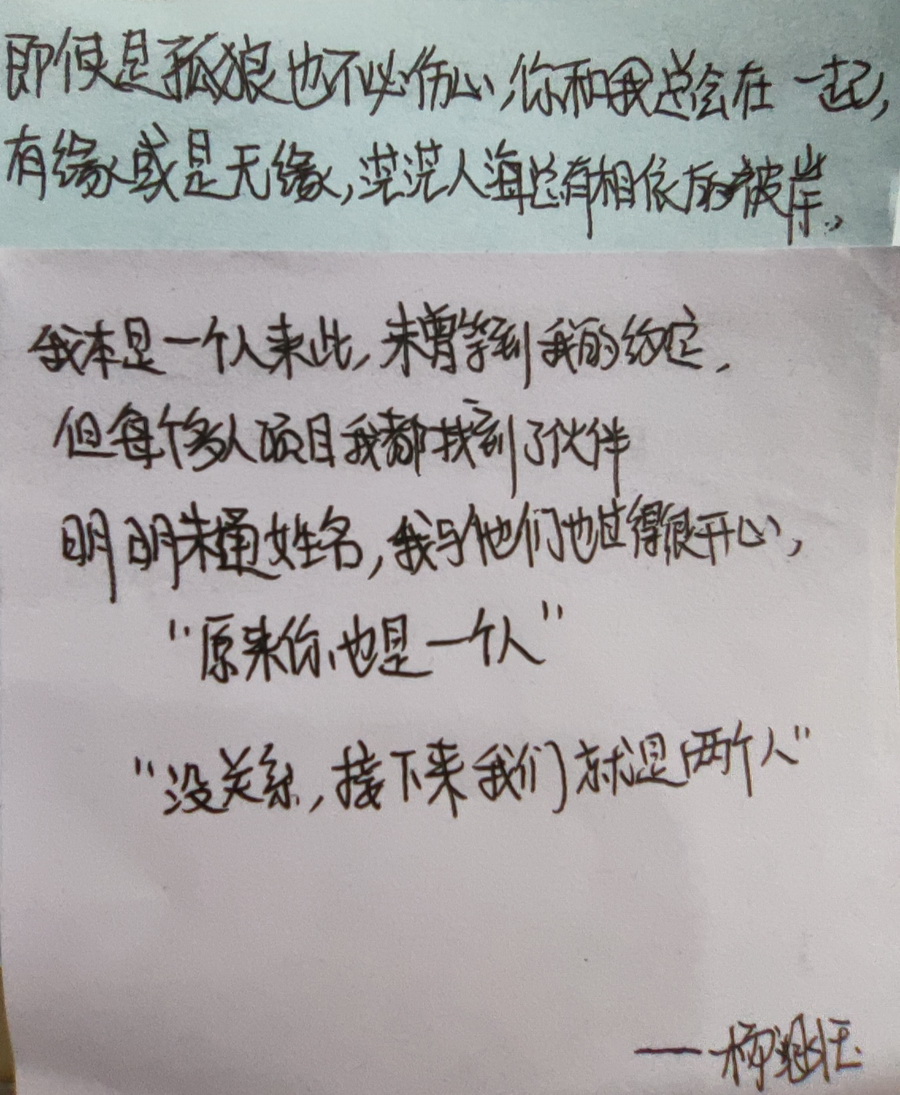 即使是孤狼也不必伤心,你和我总会在一起,
有缘或是无缘,茫茫人海总有相依的彼岸。
我本是一个人来此,未曾等到我的约定,
但每个多人项目我都找到了伙伴
明明未通姓名,我与他们也过得很开心,
“原来你也是一个人”
“没关系,接下来我们就是两个人”
——柳